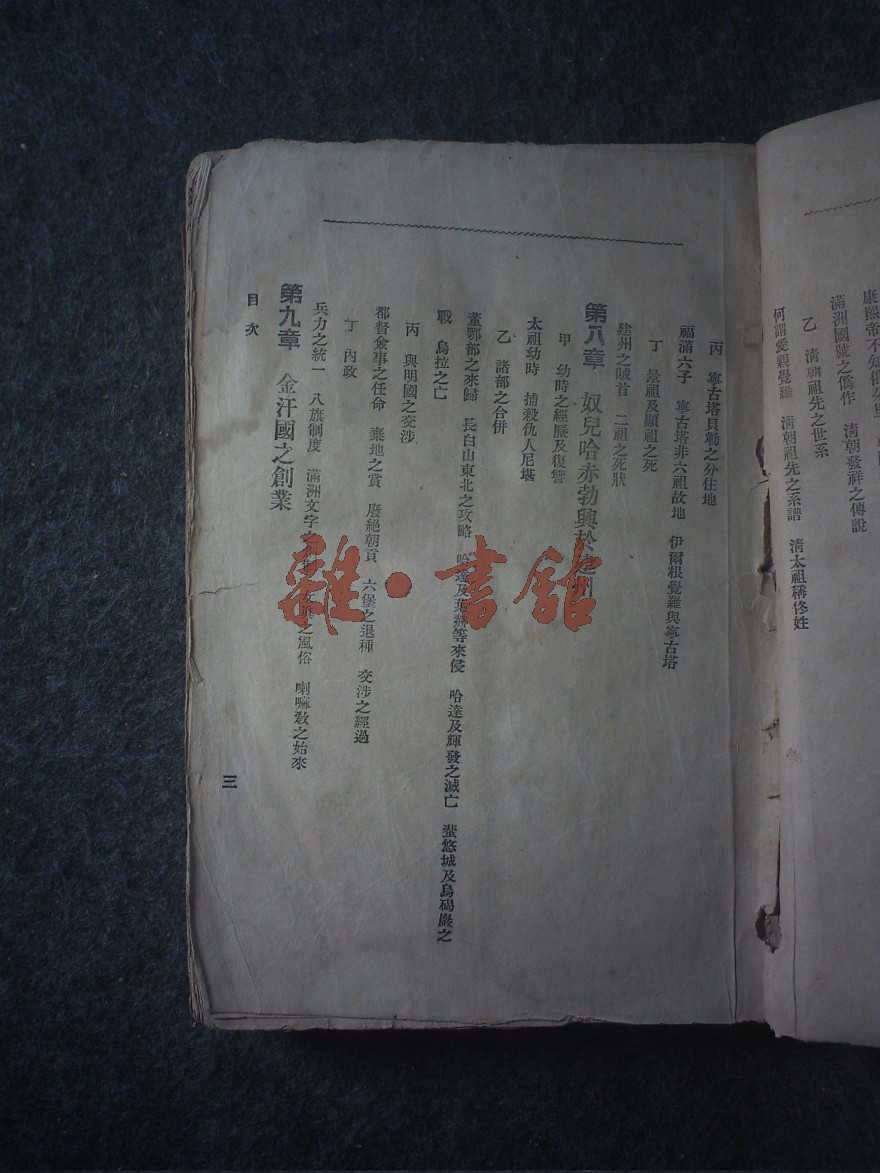 康熙帝不知
滿洲國號之僞作　清朝發祥之傳說
乙　清朝祖先之世系
何謂愛親覺羅　清朝祖先之系譜　清太祖稱佟姓
丙　寧古塔貝勒之分住地
福滿六子　寧古塔非六祖故地　伊爾根覺羅與寧古塔
丁　景祖及顯祖之死
建州之賊首　二祖之死狀
第八章　奴兒哈赤勃興於建州
甲　幼時之經歷及復讐
太祖幼時　捕殺仇人尼堪
乙　諸部之合併
董鄂部之來歸　長白山東北之攻略　哈達及葉赫等來侵　哈達及輝發之滅亡　蜚悠城及烏碣巖之
戰　烏拉之亡
丙　與明國之交涉
都督僉事之任命　棄地之賞　廢絕朝貢　六堡之退種　交涉之經過
丁　內政
兵力之統一　八旗制度　滿洲文字　之風俗　喇嘛教之始來
第九章　金汗國之創業
目次
三
雜·書館